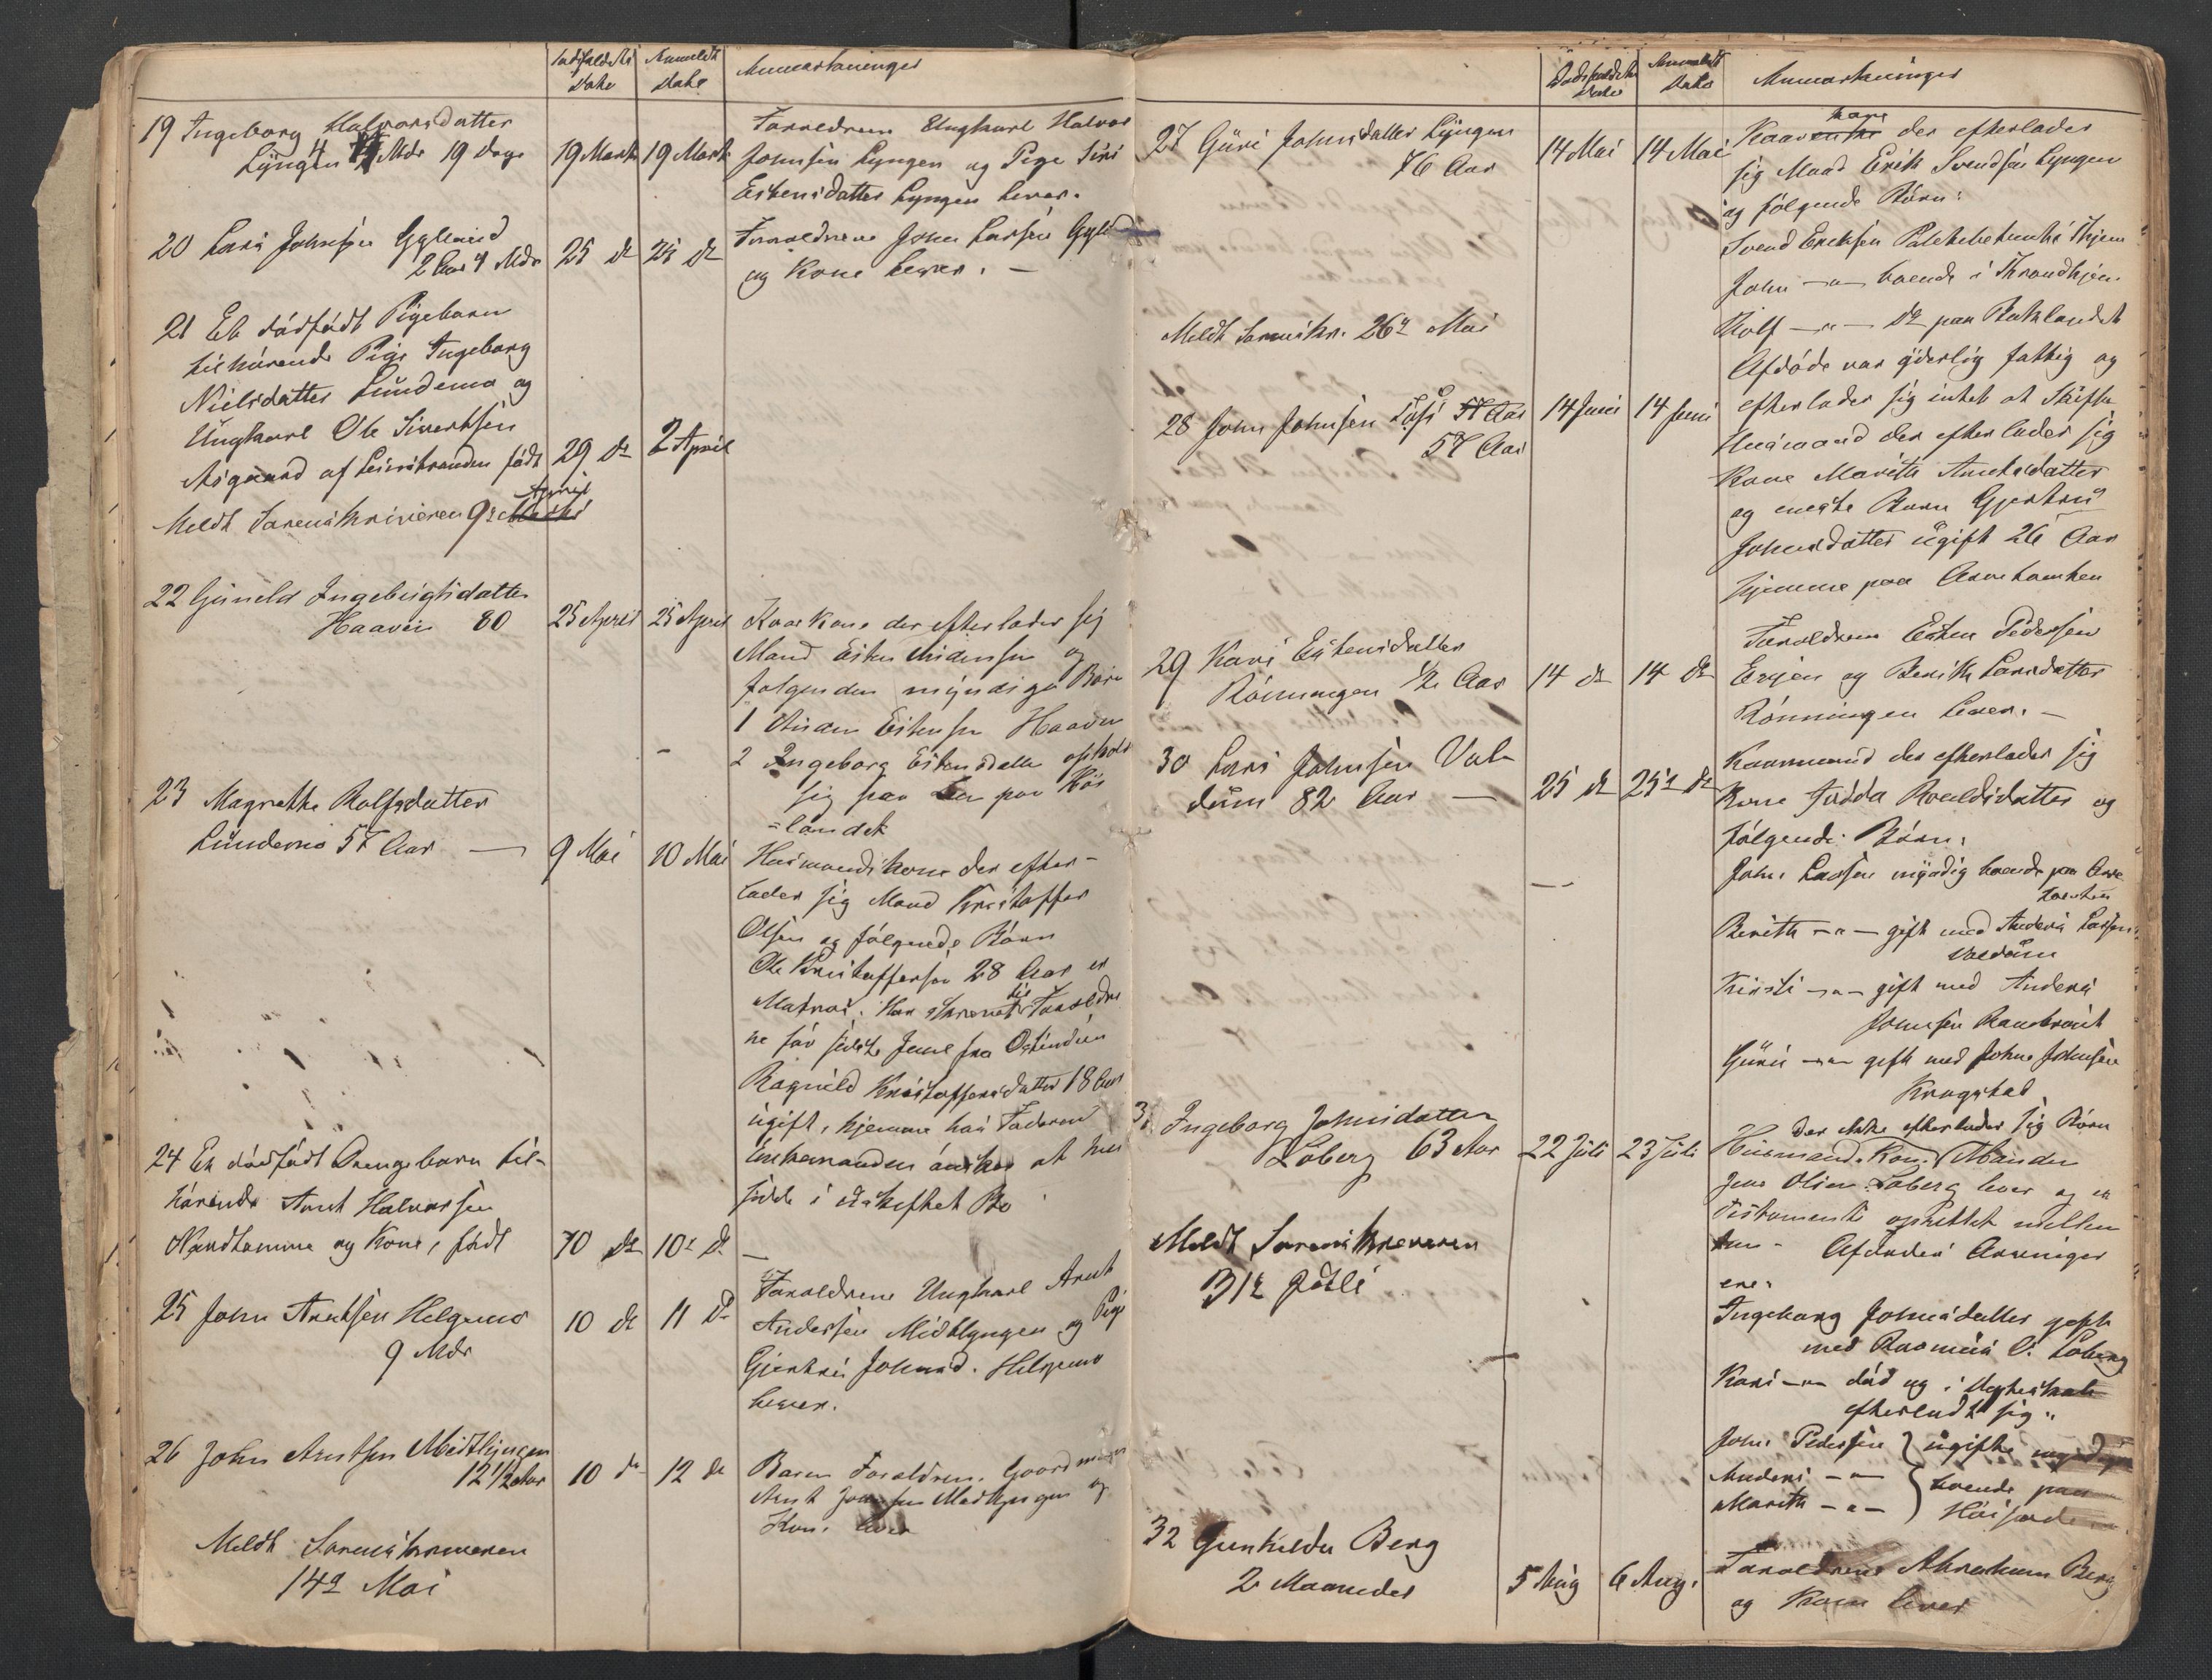 Dødsfaldets Date
Anmeldt Date
Anmærkninger
19 Ingeborg Halvorsdatter
Lyngen 4 Mdr 19 Dage
19 Marts
19 Marts
Forældrene Ungkarl Halvor
Johnsen Lyngen og Pige Siri
Estensdatter Lyngen lever.
20 Lars Johnsen Gylland
2 Aar 9 Mdr
25 do
25 do
Forældrene John Larsen Gyll
og Kone lever. —
21 Et dødfødt Pigebarn
tilhørende Pige Ingeborg
Nielsdatter Lundemo og
Ungkarl Ole Sivertsen
Asgaard af Leinstranden født
29 do
2 April
Meldt Sorenskriveren 9de April
22 Gunild Ingebrigtsdatter
Haaven 80
25 April
25 April
Kaarkone der efterlader sig
Mand Esten Andersen og
følgenden myndige Børn
1 Anders Estensen Haaven
2 Ingeborg Estensdatter opholder
sig paa Ler paa Høi
=landet
23 Magrethe Rolfsdatter
Lundemo 57 Aar —
9 Mai
10 Mai
Husmandskone der efter-
lader sig Mand Kristoffer
Olsen og følgende Børn
Ole Kristoffersen 28 Aar er
Matros. Han skrev til Forældre
ne før sidste Juul fra Ostindien
Ragnild Kristoffersdatter 18 Aar
ugift, hjemme hos Faderen
Enkemanden ønsker at
sidde i uskiftet Bo
24 Et dødfødt Drengebarn til-
hørende Arnt Halvorsen
Nordtømme og Kone, født
10 do
10de do
—
25 John Arntsen Helgemo
9 Mdr
10 do
11 do
Forældrene Ungkarl Arnt
Andersen Midtlyngen og Pige
Gjertru Johnsd. Helgemo
lever.
26 John Arntsen Midtlyngen
12 1/2 Aar
10 do
12 do
Barn Forældren. Gaardmand
Arnt Johnsen Midtlyngen og
Kone lever
Meldt Sorenskriveren
14de Mai
Dødsfaldets Date
Anmeldt Date
Anmærkninger
27 Guri Johnsdatter Lyngen
76 Aar
14 Mai
14 Mai
Kaarkone der efterlader
sig Mand Erik Svendsen Lyngen
og følgende Børn:
Svend Eriksen
John —"— boende i Throndhjem
Rolf —"— do paa Baklandet
Afdøde var yderlig fattig og
efterlader sig intet at Skifte
Meldt Sorenskr. 26de Mai
28 John Johnsen
57 Aar
14 Juni
14 Juni
Husmand der efterlader sig
Kone Marith Arntsdatter
og eneste Barn Gjertru
Johnsdatter ugift 26 Aar
hjemme paa
29 Kari Estensdatter
Rønningen 1/2 Aar
14 do
14 do
Forældrene Esten Pedersen
og Berith Larsdatter
Rønningen lever. —
30 Lars Johnsen Val-
dum 82 Aar —
25 do
25de do
Kaarmand der efterlader sig
Kone Roaldsdatter og
følgende Børn:
John Larsen myndig boende paa
Berith —"— gift med Anders Larsen
Valdum
Kirsti —"— gift med Anders
Johnsen
Guru —"— gift med John Johnsen
Krogstad
31 Ingeborg Johnsdatter
Løberg 63 Aar
22 Juli
23 Juli
der ikke efterlader sig Børn
Husmands Kone. Manden
Jens Olsen Løberg lever og er
Testamente oprettet mellem
Afdødes Arvinger
ere:
Ingeborg Johnsdatter gift
med Rasmus O. Løberg
Kari —"— død og i
efterladt sig:
John Pedersen } ugifte
Anders —"—
Marith —"— } boende paa
Meldt Sorenskriveren
31te Juli
32 Gunhilda Berg
2 Maaneder
5 Aug
6 Aug.
Forældrene Abraham Berg
og Kone lever